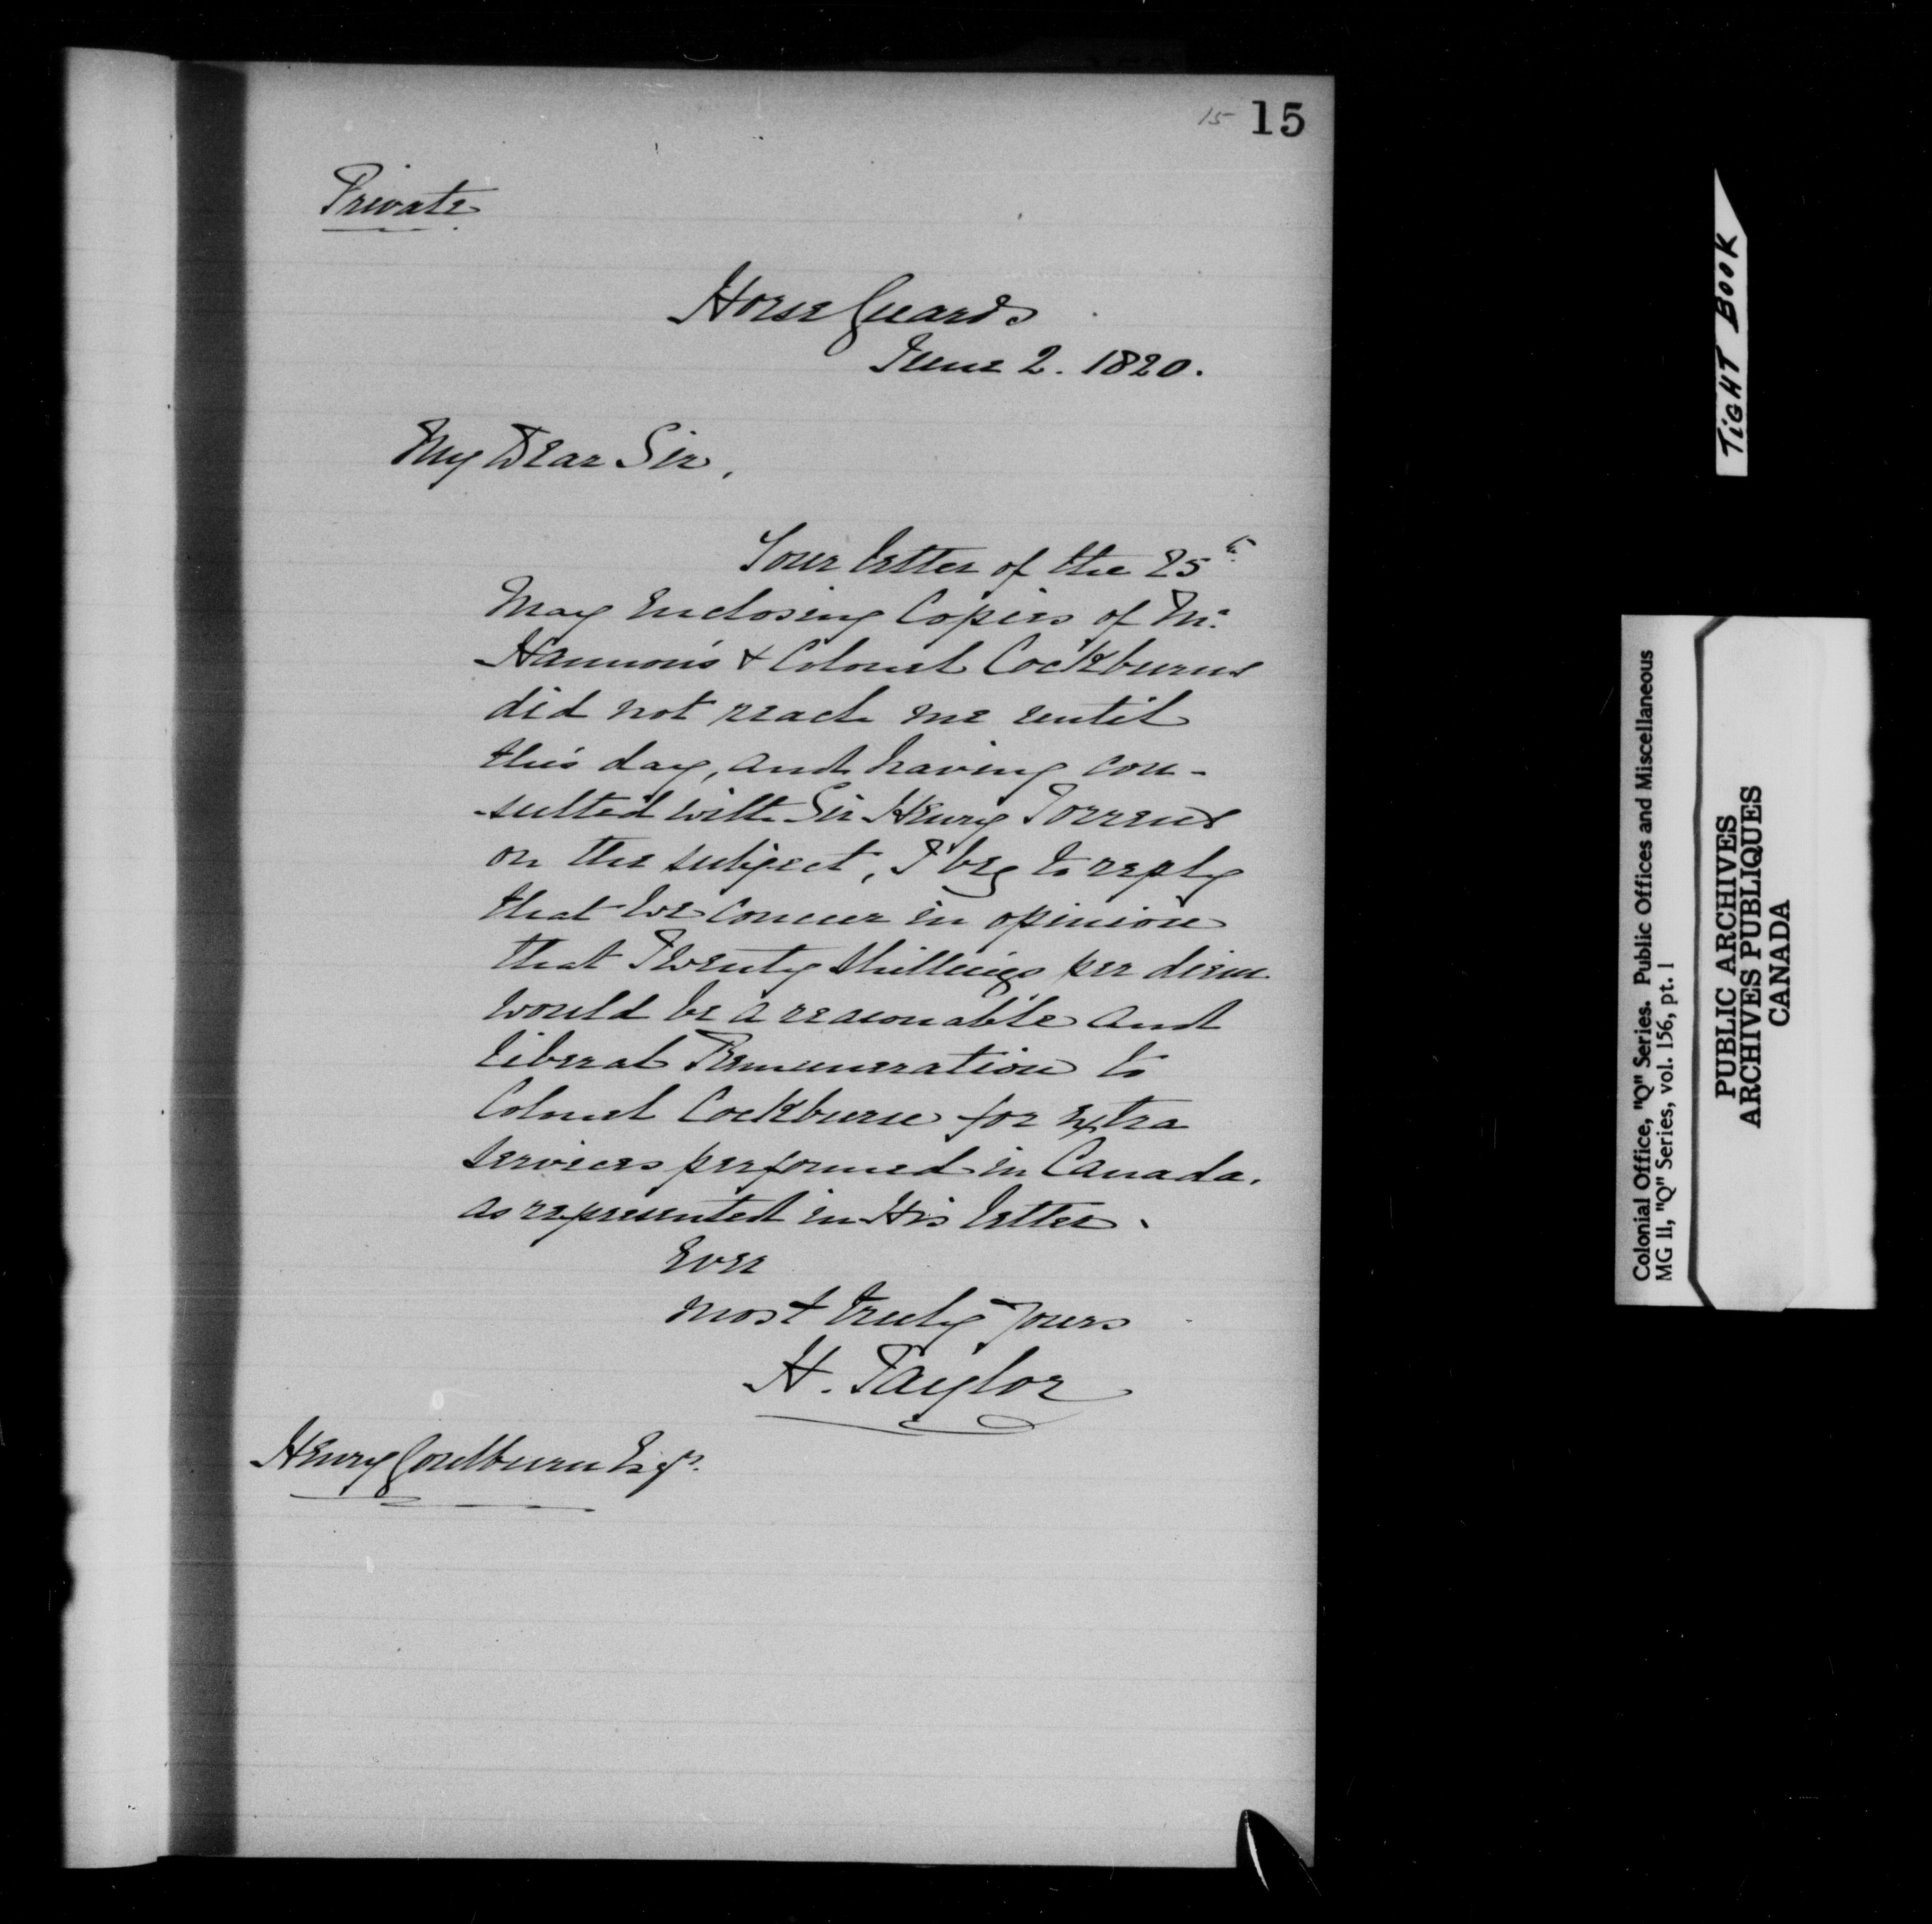 15 15
Private
Horse Guards
June 2. 1820.
My Dear Sir,
Your letter of the 25th
May Enclosing Copies of Mr.
& Colonel Cockburns
did not reach me until
this day, and having con-
-sulted with Sir Henry Torrens
on the subject, I beg to reply
that we concur in opinion
that Twenty Shillings per diem
would be a reasonable and
liberal Remuneration to
Colonel Cockburn for Extra
services performed in Canada.
as represented in His letter.
Ever
most truly yours
H. Taylor
Henry Goulburn Esqr.
TiGHT BOOK
Colonial Office, "Q" Series. Public Offices and Miscellaneous
MG 11, "Q" Series, vol. 156, pt. 1
PUBLIC ARCHIVES
ARCHIVES PUBLIQUES
CANADA